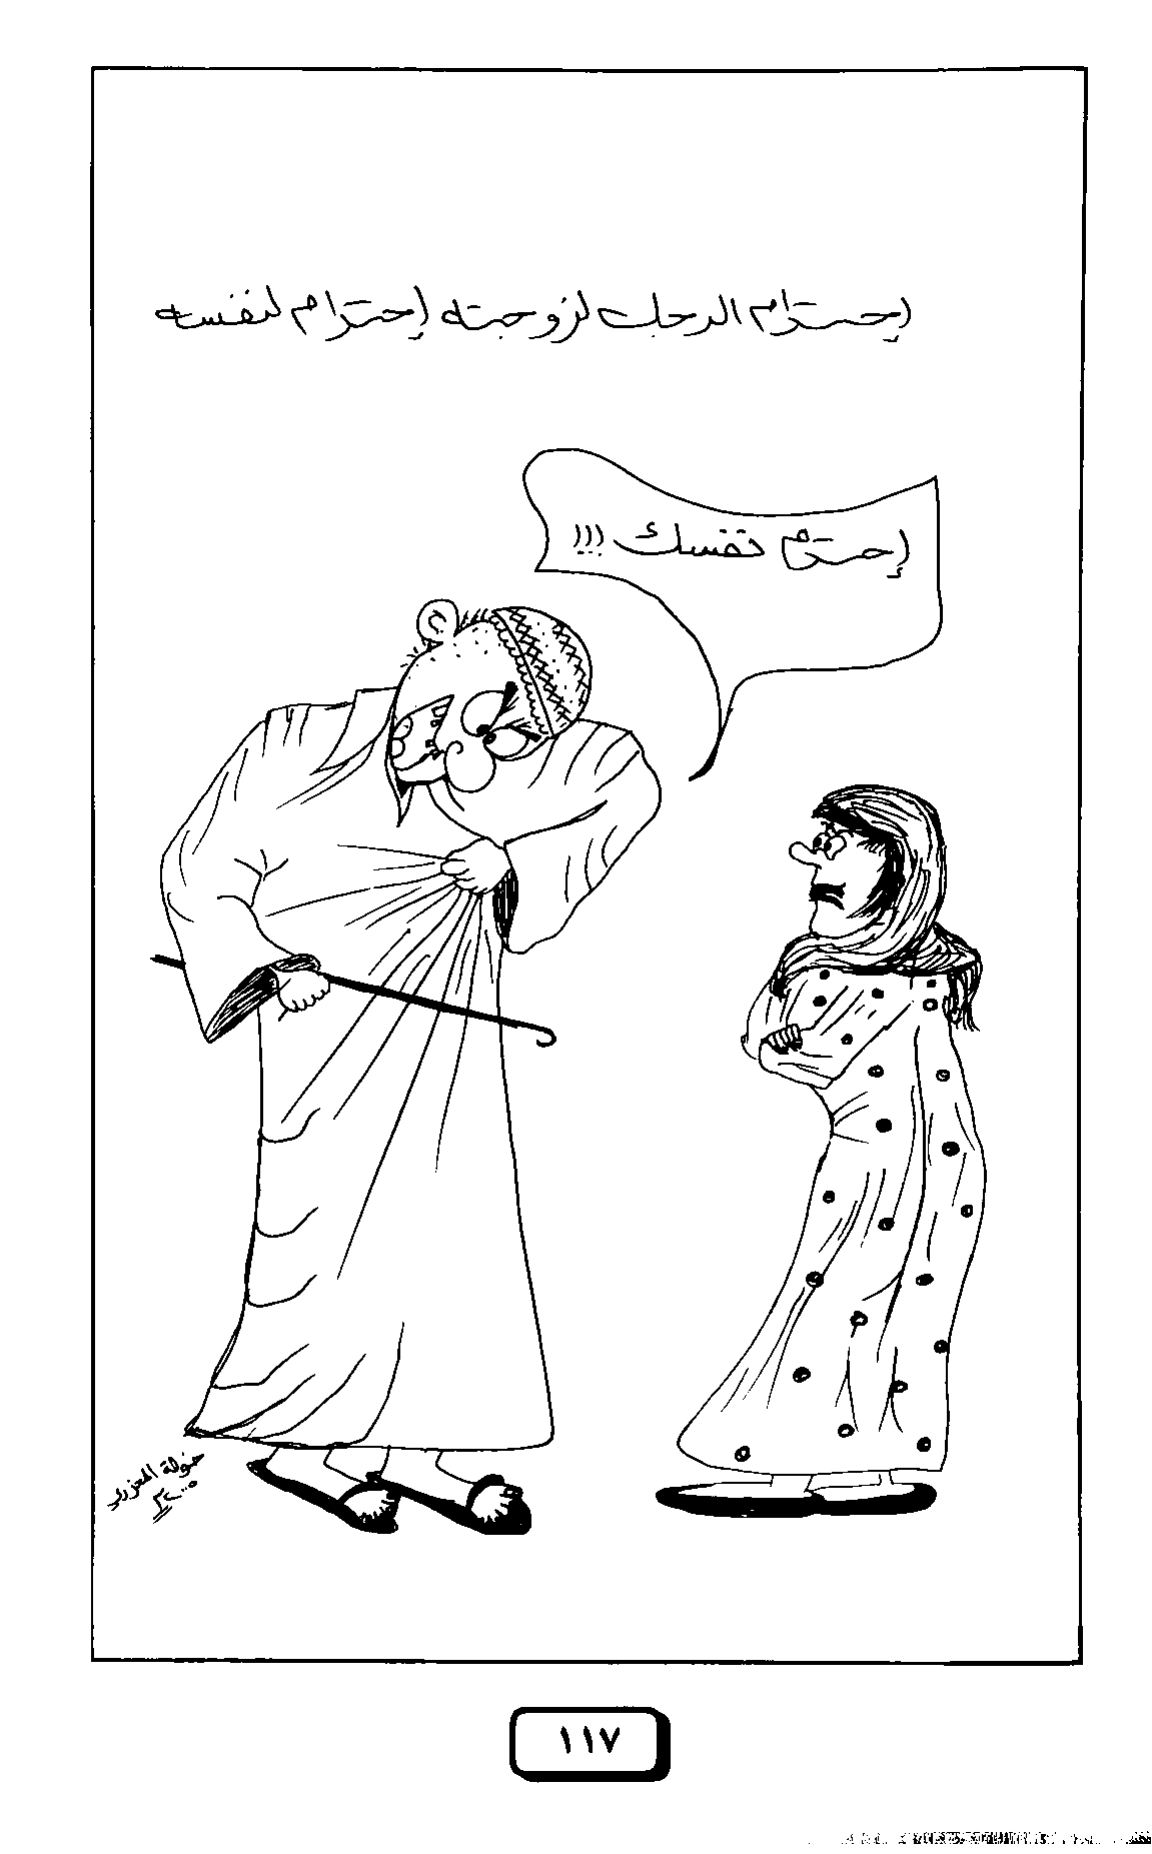 إحترام الرجل لزوجته إحترام لنفسه
إحترم نفسك !!!
خولة
١١٧